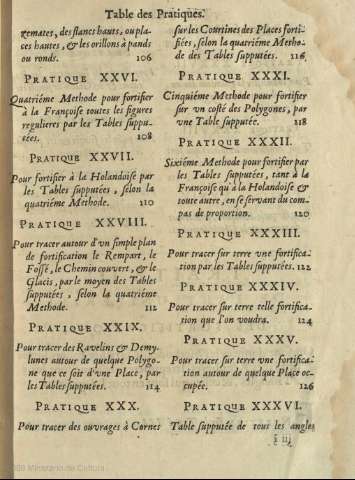 Table des Pratiques.
gemates, des flancs hauts, ou pla-
ces hautes, & les orillons à pands
ou ronds. 106
PRATIQUE XXVI.
Quatriéme Methode pour fortifier
à la Françoise toutes les figures
regulieres par les Tables suppu-
tées. 108
PRATIQUE XXVII.
Pour fortifier à la Holandoise par
les Tables supputées, selon la
quatriéme Methode. 110
PRATIQUE XXVIII.
Pour tracer autour d'vn simple plan
de fortification le Rempart, le
Fossé, le Chemin couvert, & le
Glacis, par le moyen des Tables
supputées, selon la quatriéme
Methode. 112
PRATIQUE XXIX.
Pour tracer des Ravelins & Demy-
lunes autour de quelque Polygo-
ne que ce soit d'vne Place, par
les Tables supputées. 114
PRATIQUE XXX.
Pour tracer des ouvrages à Cornes
sur les Courtines des Places forti-
fiées, selon la quatriéme Metho-
de des Tables supputées. 116
PRATIQUE XXXI.
Cinquiéme Methode pour fortifier
sur vn costé des Polygones, par
vne Table supputée. 118
PRATIQUE XXXII.
Sixiéme Methode pour fortifier par
les Tables supputées, tant à la
Françoise qu'à la Holandoise &
toute autre, en se servant du com-
pas de proportion. 120
PRATIQUE XXXIII.
Pour tracer sur terre vne fortifica-
tion par les Tables supputées. 122
PRATIQUE XXXIV.
Pour tracer sur terre telle fortifica-
tion que l'on voudra. 124
PRATIQUE XXXV.
Pour tracer sur terre vne fortifica-
tion autour de quelque Place oc-
cupée. 126
PRATIQUE XXXVI.
Table supputée de tous les angles
ĩ iij
Ministerio de Cultura